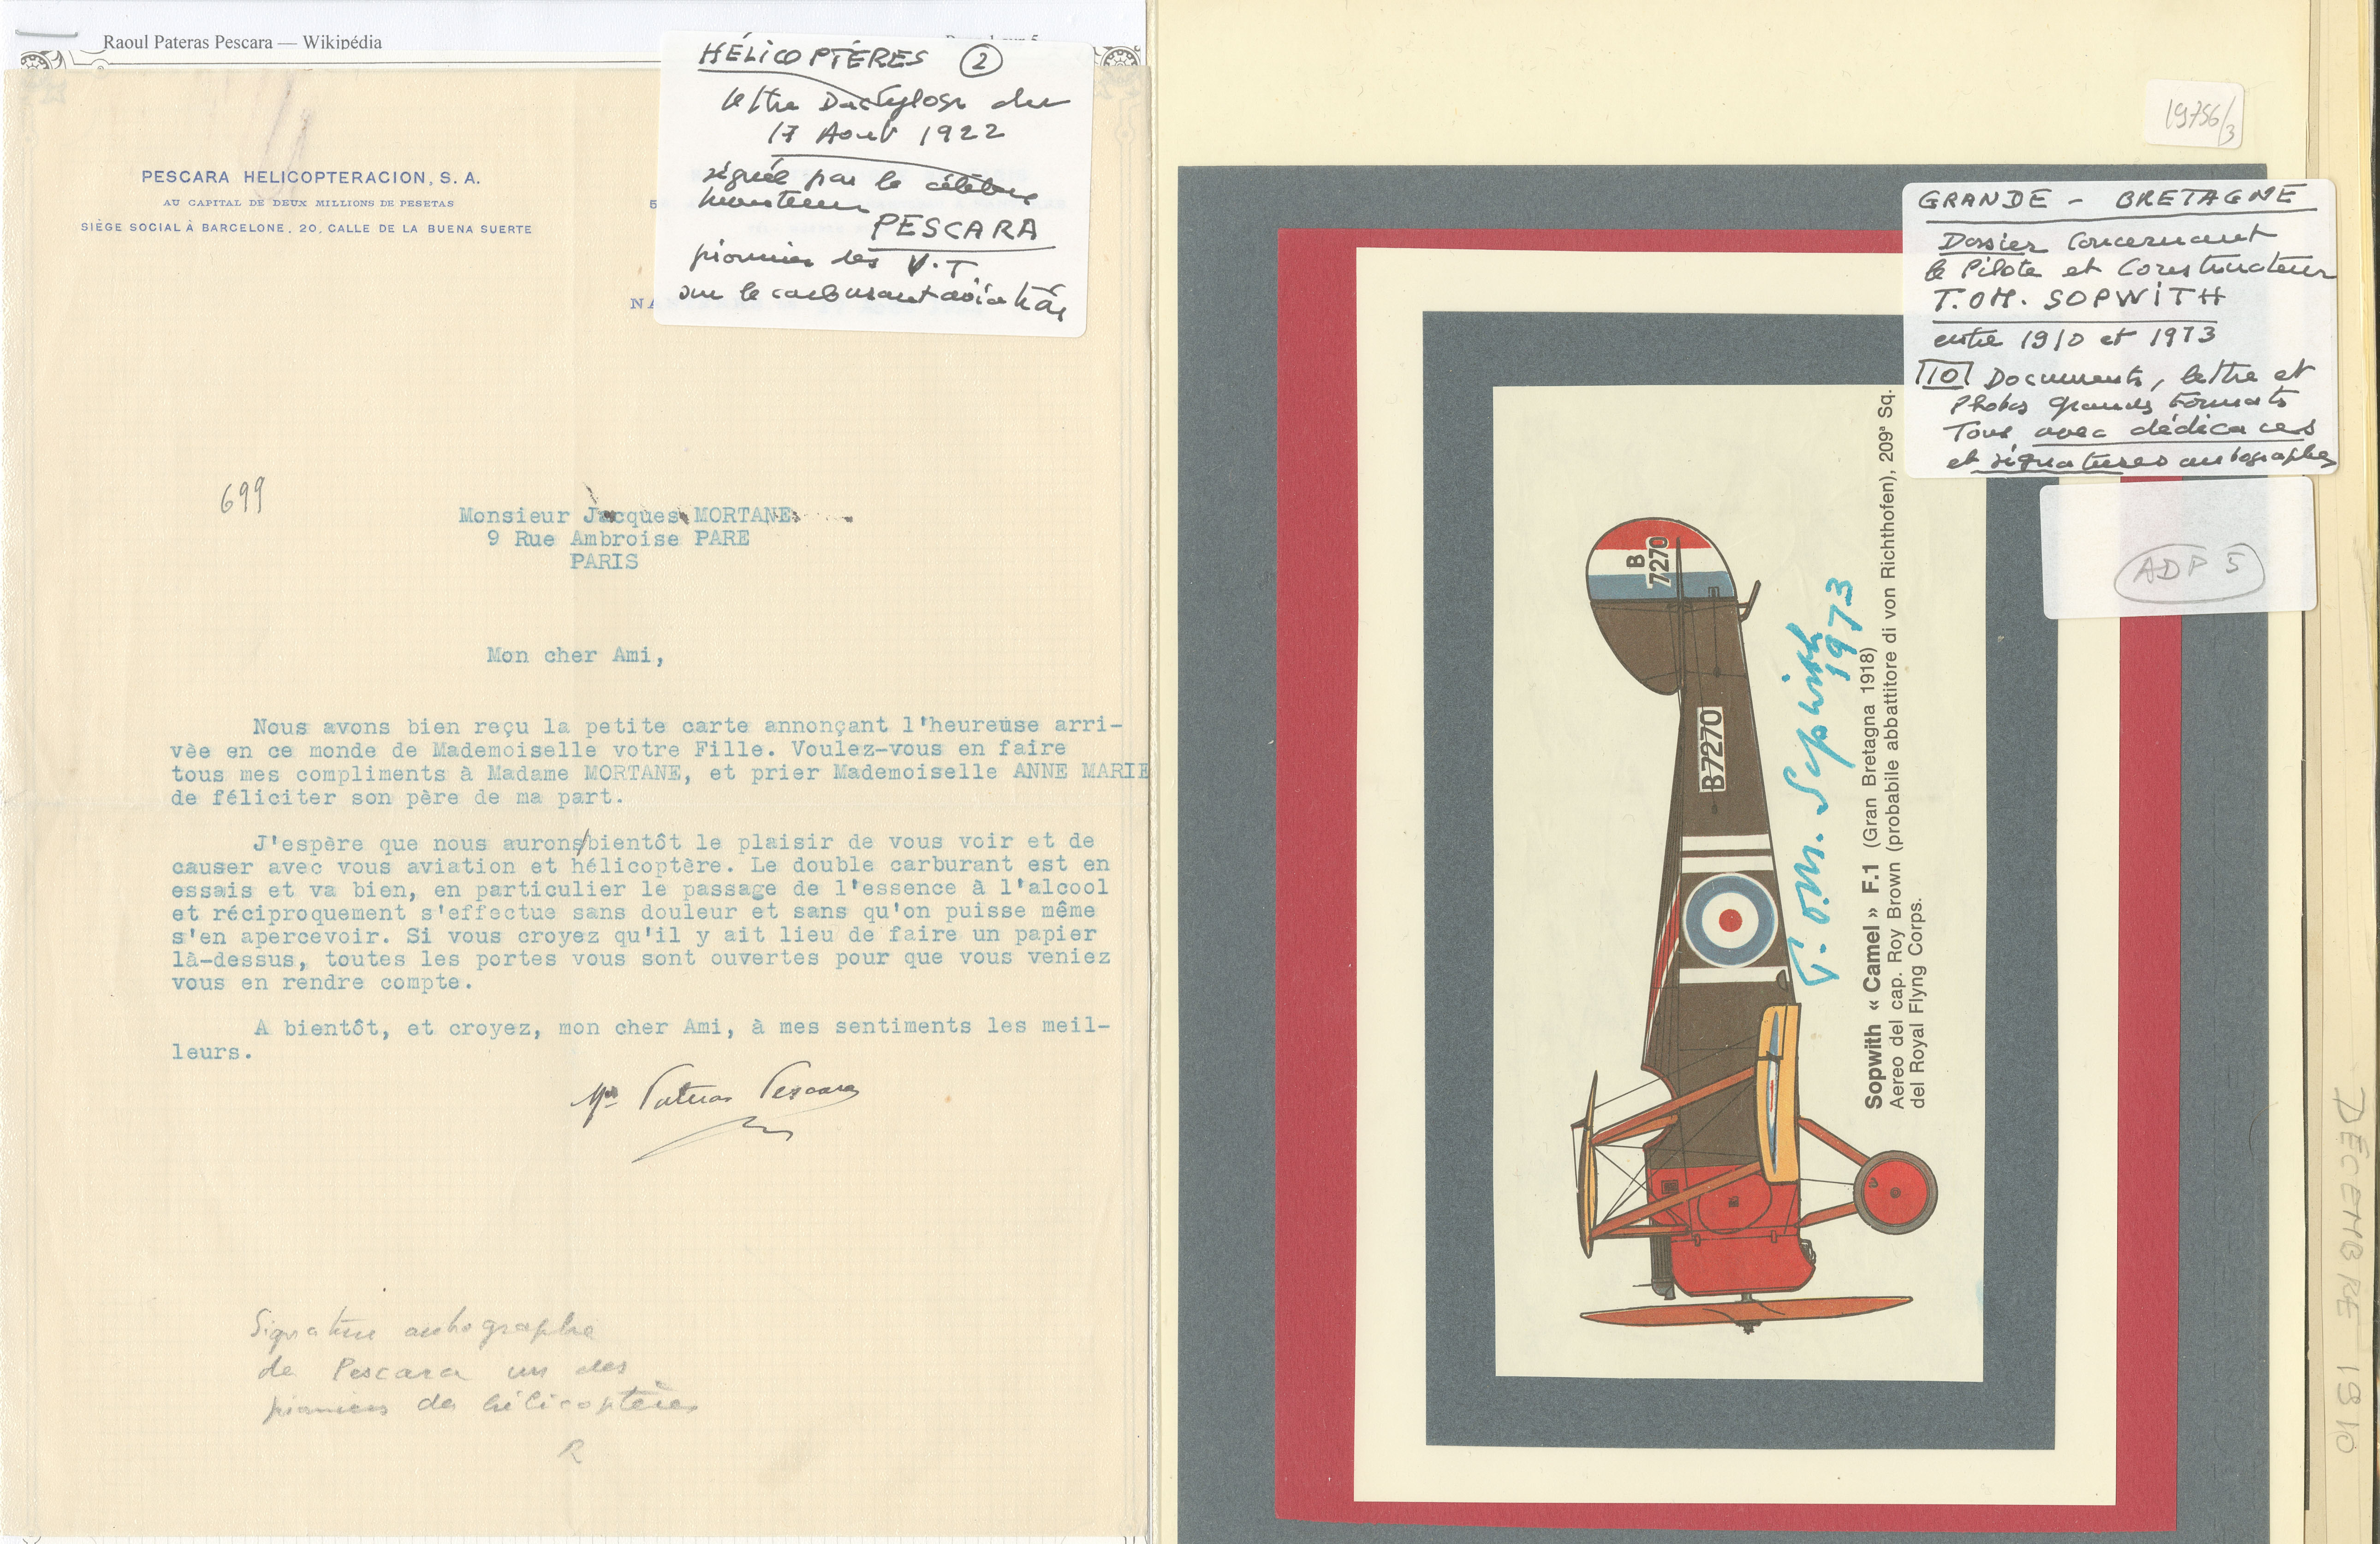 Raoul Pateras Pescara — Wikipédia
HÉLICOPTÈRES 2
lettre Dactylogr du
17 Aout 1922
signée par le célèbre
PESCARA
pionnier des V.T.
sur le carburant aviation
PESCARA HELICOPTERACION, S. A.
AU CAPITAL DE DEUX MILLIONS DE PESETAS
SIÈGE SOCIAL À BARCELONE, 20, CALLE DE LA BUENA SUERTE
5
NA
699
Monsieur Jacques MORTANE
9 Rue Ambroise PARE
PARIS
Mon cher Ami,
Nous avons bien reçu la petite carte annonçant l'heureuse arri-
vèe en ce monde de Mademoiselle votre Fille. Voulez-vous en faire
tous mes compliments à Madame MORTANE, et prier Mademoiselle ANNE MARIE
de féliciter son père de ma part.
J'espère que nous aurons/bientôt le plaisir de vous voir et de
causer avec vous aviation et hélicoptère. Le double carburant est en
essais et va bien, en particulier le passage de l'essence à l'alcool
et réciproquement s'effectue sans douleur et sans qu'on puisse même
s'en apercevoir. Si vous croyez qu'il y ait lieu de faire un papier
là-dessus, toutes les portes vous sont ouvertes pour que vous veniez
vous en rendre compte.
A bientôt, et croyez, mon cher Ami, à mes sentiments les meil-
leurs.
Pateras Pescara
Signature autographe
de Pescara un des
pionniers des hélicoptères
R
19756/3
GRANDE - BRETAGNE
Dossier Concernant
le Pilote et Constructeur
T.OM. SOPWITH
entre 1910 et 1973
10 Documents, lettre et
Photos grands Formats
Tous avec dédicaces
et signatures autographes
ADP 5
B
7270
B7270
T.O.M. Sopwith
1973
Sopwith « Camel » F.1 (Gran Bretagna 1918)
Aereo del cap. Roy Brown (probabile abbattitore di von Richthofen), 209ª Sq.
del Royal Flyng Corps.
DÉCEMBRE 1910